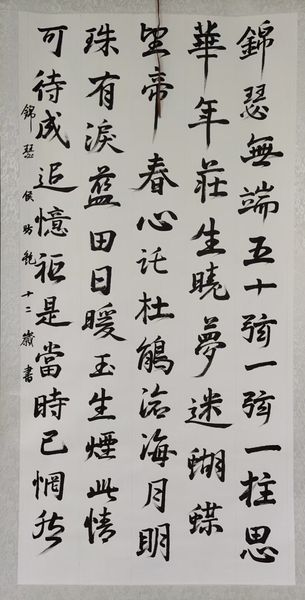 錦瑟無端五十弦一弦一柱思
華年莊生曉夢迷蝴蝶
望帝春心託杜鵑滄海月明
珠有淚藍田日暖玉生煙此情
可待成追憶祗是當時已惘然
錦瑟 侯 十二歲書